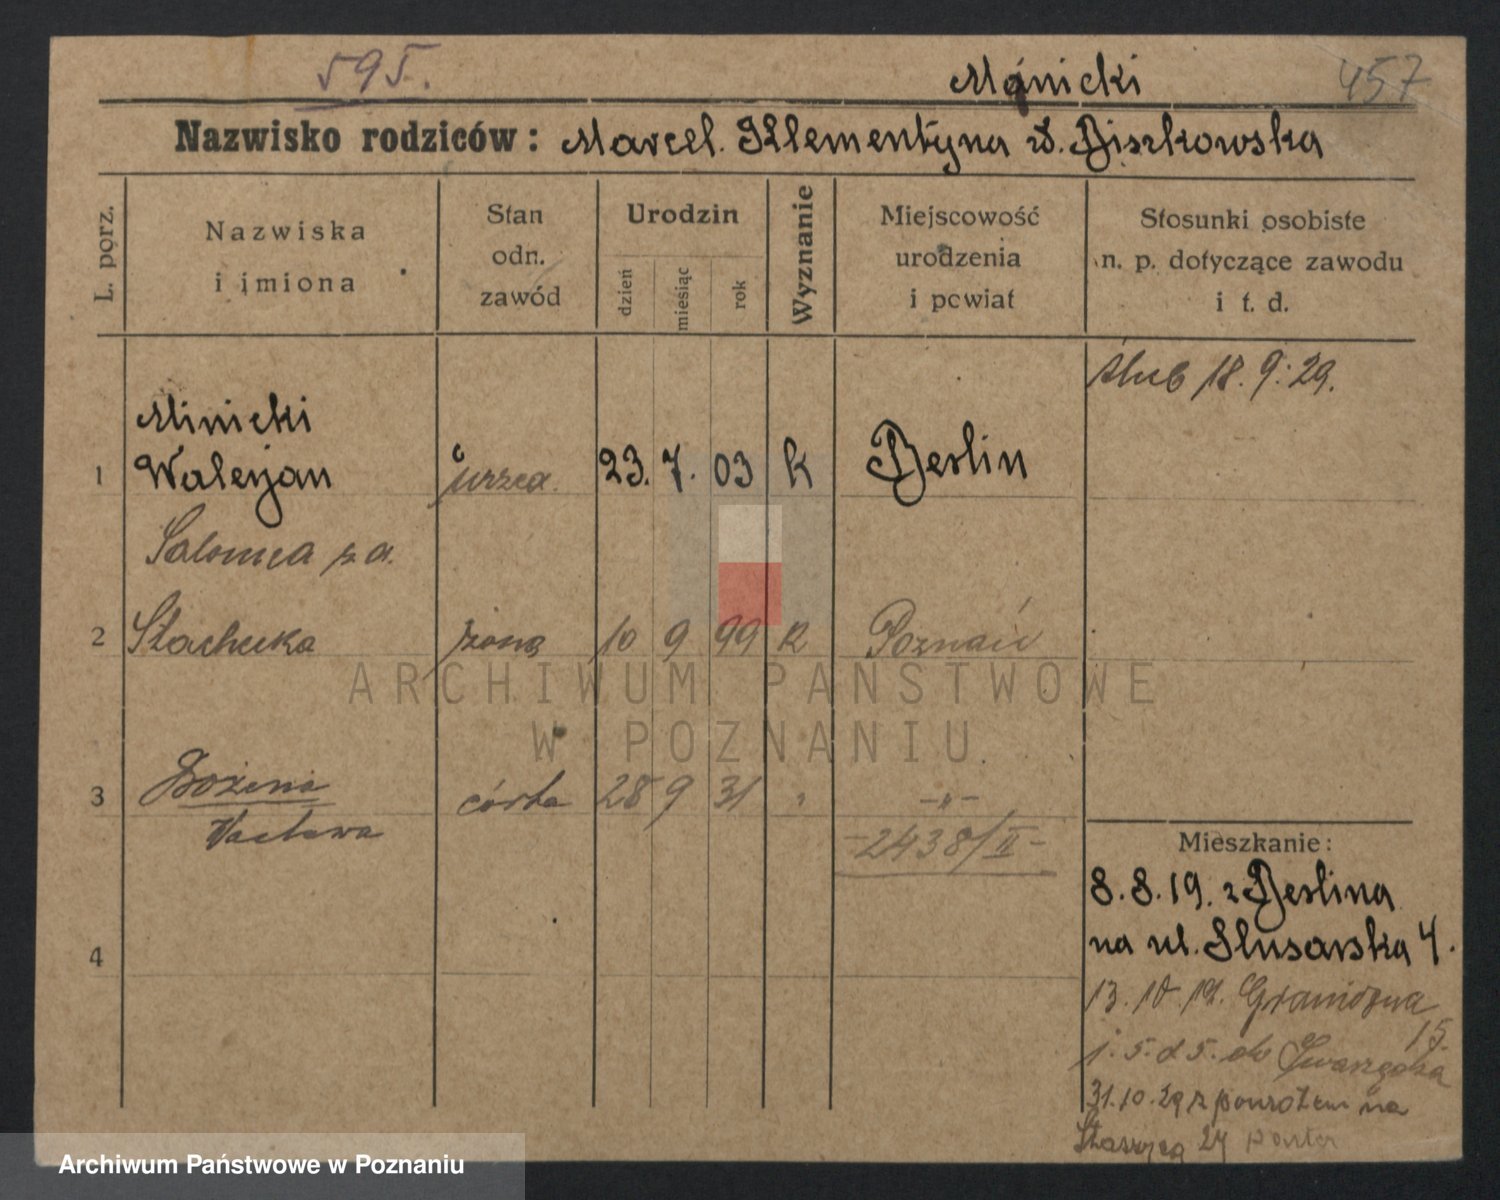 595.
Mģnicki
457
Nazwisko rodziców: Marcel. Klementyna z d. Biszkowska
L. porz.
Nazwiska
i imiona
Stan
odn.
zawód
Urodzin
dzień
miesiąc
rok
Wyznanie
Miejscowość
urodzenia
i powiat
Stosunki osobiste
n. p. dotyczące zawodu
i t. d.
ślub 18. 9. 29.
Minicki
1 Waleryan urzęd. 23. 7. 03 k Berlin
Salomea z d.
2 Stachecka żona 10 9 99 k Poznań
3 Bożena córka 28 9 31 " -"-
Wacława
-2438/II-
4
Mieszkanie:
8. 8. 19. z Berlina
na ul. Slusarska 4.
13. 10. 19. Graniczna
15.
1. 5. 25. do Swarzędza
31. 10. 29 z powrotem na
Staszyca 27 parter
ARCHIWUM PAŃSTWOWE
W POZNANIU
Archiwum Państwowe w Poznaniu